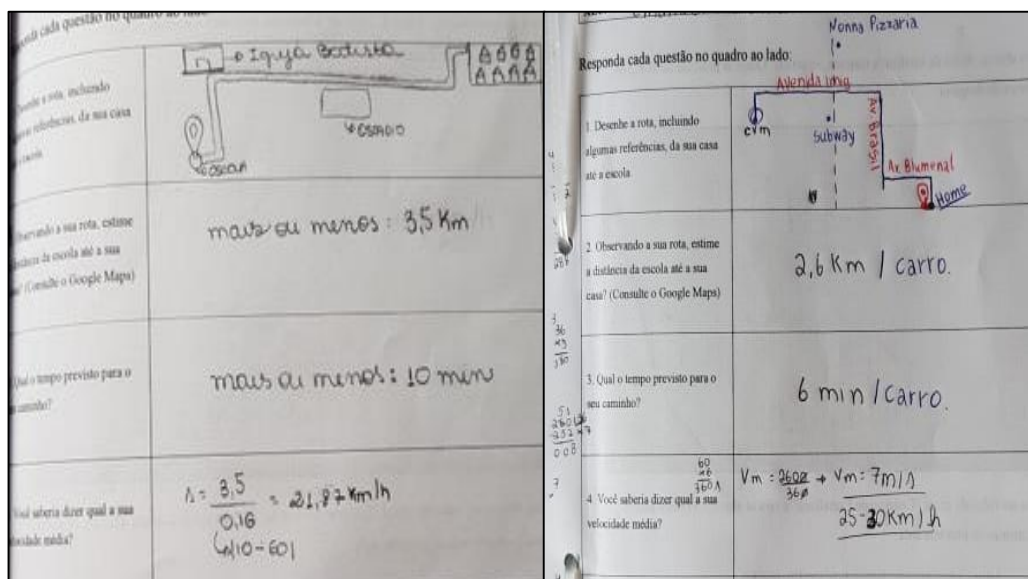 cada questão no quadro ao lado
Igreja Batista
ESTADIO
rota, incluindo
referências, da sua casa
escola
a sua rota, estime
da escola até a sua
(Consulte o Google Maps)
mais ou menos: 3,5 Km
o tempo previsto para o
caminho?
mais ou menos: 10 min
saberia dizer qual a sua
velocidade média?
3,5
0,16
= 21,87 Km/h
Nonna Pizzaria
Responda cada questão no quadro ao lado:
1. Desenhe a rota, incluindo
algumas referências, da sua casa
até a escola
Avenida Imig
CVM
Subway
Av. Brasil
Av Blumenal
Home
2. Observando a sua rota, estime
a distância da escola até a sua
casa? (Consulte o Google Maps)
2,6 Km / carro.
3. Qual o tempo previsto para o
seu caminho?
6 min / carro.
60
x6
360
4. Você saberia dizer qual a sua
velocidade média?
Vm = 2600
360
Vm = 7m/s
25-30Km/h